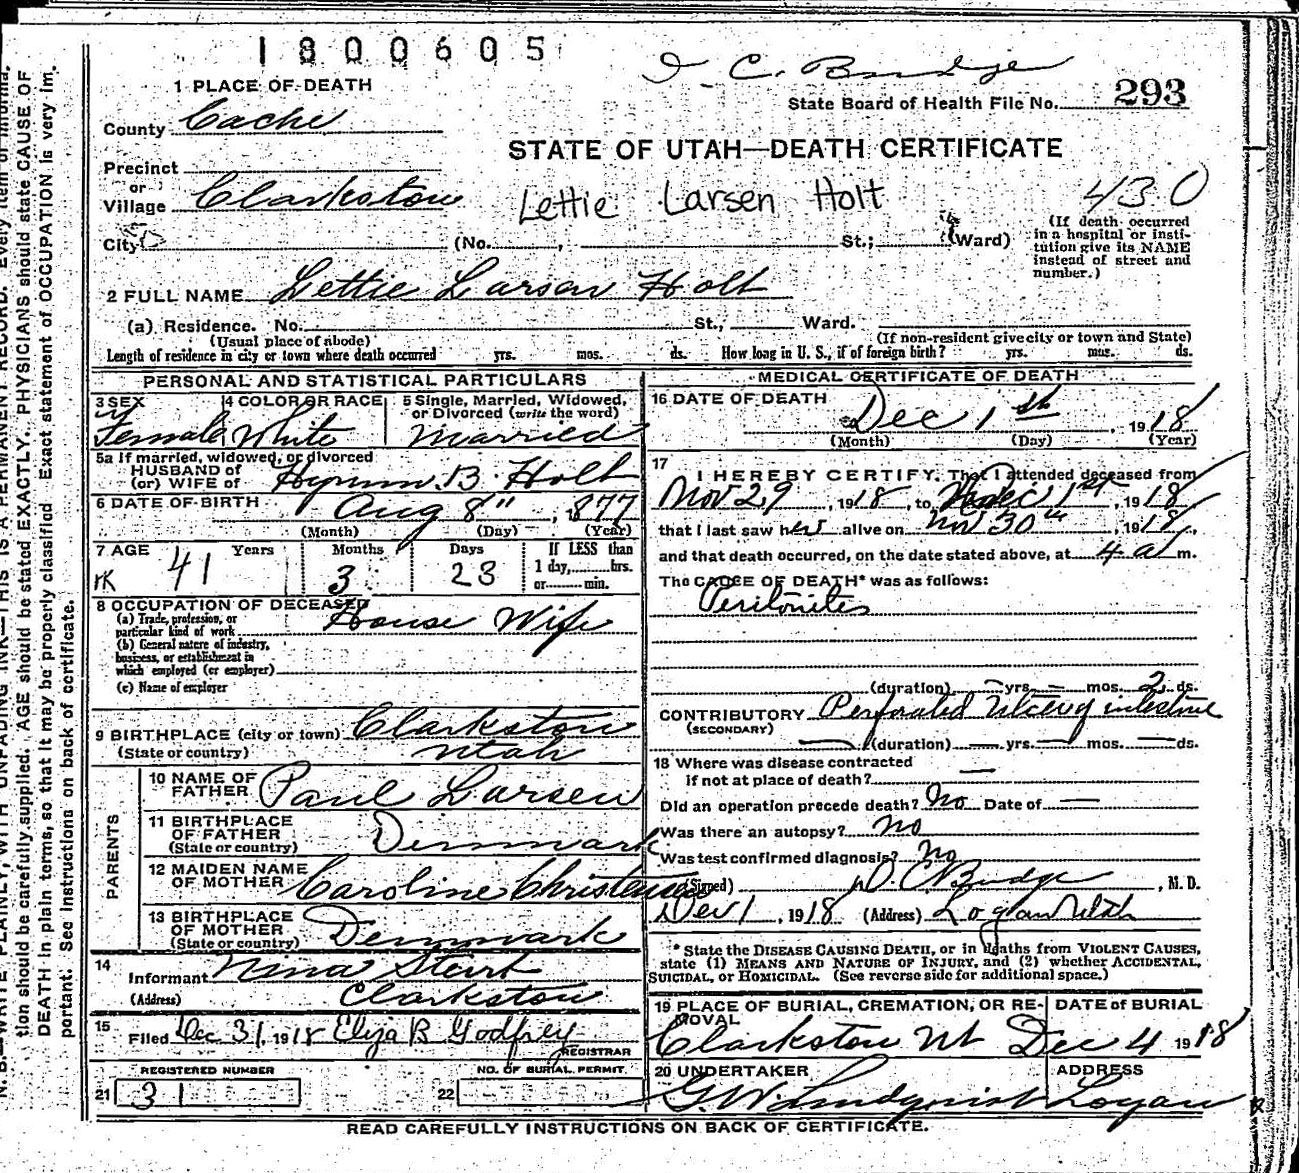 1800605
D C Budge
1 PLACE OF DEATH
State Board of Health File No. 293
County Cache
STATE OF UTAH—DEATH CERTIFICATE
Precinct
or
Village Clarkston
Lettie Larsen Holt
430
City (No. , St.; Ward)
(If death occurred
in a hospital or insti-
tution give its NAME
instead of street and
number.)
2 FULL NAME Lettie Larson Holt
(a) Residence. No. St., Ward.
(Usual place of abode) (If non-resident give city or town and State)
Length of residence in city or town where death occurred yrs. mos. ds. How long in U. S., if of foreign birth? yrs. mos. ds.
PERSONAL AND STATISTICAL PARTICULARS
3 SEX Female
4 COLOR OR RACE White
5 Single, Married, Widowed,
or Divorced (write the word)
Married
5a If married, widowed, or divorced
HUSBAND of
(or) WIFE of Hyrum B. Holt
6 DATE OF BIRTH Aug 8", 1877
(Month) (Day) (Year)
7 AGE Years Months Days If LESS than
1 day, hrs.
or min.
41 3 23
8 OCCUPATION OF DECEASED
(a) Trade, profession, or
particular kind of work House Wife
(b) General nature of industry,
business, or establishment in
which employed (or employer)
(c) Name of employer
9 BIRTHPLACE (city or town) Clarkston
(State or country) Utah
PARENTS
10 NAME OF
FATHER Paul Larsen
11 BIRTHPLACE
OF FATHER
(State or country) Denmark
12 MAIDEN NAME
OF MOTHER Caroline Christensen
13 BIRTHPLACE
OF MOTHER
(State or country) Denmark
14
Informant Nina Stewt
(Address) Clarkston
15
Filed Dec 31, 1918 Eliza B Godfrey
REGISTRAR
REGISTERED NUMBER NO. OF BURIAL PERMIT
21 31 22
MEDICAL CERTIFICATE OF DEATH
16 DATE OF DEATH
Dec 1st, 1918
(Month) (Day) (Year)
17
I HEREBY CERTIFY, That I attended deceased from
Nov 29, 1918, to Dec 1st, 1918
that I last saw her alive on Nov 30th, 1918,
and that death occurred, on the date stated above, at 4 a m.
The CAUSE OF DEATH* was as follows:
Peritonites
(duration) — yrs. — mos. 2 ds.
CONTRIBUTORY Perforated Ulcer of intestine
(SECONDARY)
(duration) — yrs. — mos. — ds.
18 Where was disease contracted
if not at place of death? —
Did an operation precede death? No Date of —
Was there an autopsy? No
Was test confirmed diagnosis? No
(Signed) D. C. Budge, M. D.
Dec 1, 1918 (Address) Logan Utah
* State the DISEASE CAUSING DEATH, or in deaths from VIOLENT CAUSES,
state (1) MEANS AND NATURE OF INJURY, and (2) whether ACCIDENTAL,
SUICIDAL, or HOMICIDAL. (See reverse side for additional space.)
19 PLACE OF BURIAL, CREMATION, OR RE-
MOVAL
DATE of BURIAL
Clarkston Ut Dec 4 1918
20 UNDERTAKER ADDRESS
G. W. Lindquist Logan
READ CAREFULLY INSTRUCTIONS ON BACK OF CERTIFICATE.
N. B.—WRITE PLAINLY, WITH UNFADING INK—THIS IS A PERMANENT RECORD. Every item of informa-
tion should be carefully supplied. AGE should be stated EXACTLY. PHYSICIANS should state CAUSE OF
DEATH in plain terms, so that it may be properly classified. Exact statement of OCCUPATION is very im-
portant. See instructions on back of certificate.